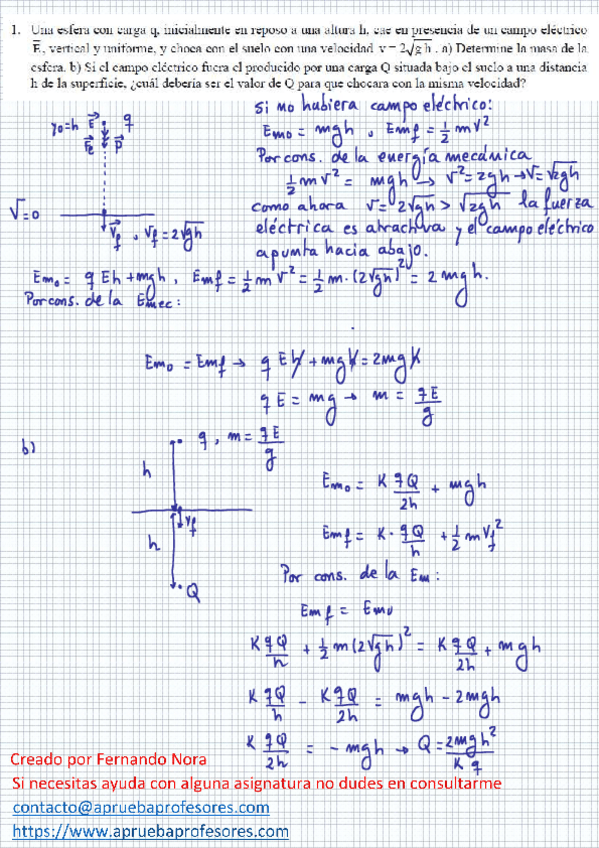 1. Una esfera con carga q, inicialmente en reposo a una altura h, cae en presencia de un campo eléctrico
E⃗, vertical y uniforme, y choca con el suelo con una velocidad v = 2√(g h). a) Determine la masa de la
esfera. b) Si el campo eléctrico fuera el producido por una carga Q situada bajo el suelo a una distancia
h de la superficie, ¿cuál debería ser el valor de Q para que chocara con la misma velocidad?
Si no hubiera campo eléctrico:
y0=h E⃗ q
F⃗e P⃗
Em0 = mgh, Emf = 1/2 mv²
Por cons. de la energía mecánica
1/2 mv² = mgh → v² = 2gh → v = √2gh
V=0
V⃗f, Vf = 2√gh
como ahora v = 2√gh > √2gh la fuerza
eléctrica es atractiva y el campo eléctrico
apunta hacia abajo.
Em0 = qEh + mgh, Emf = 1/2 m v² = 1/2 m · (2√gh)² = 2mgh.
Por cons. de la Emec:
Em0 = Emf → qEh + mgh = 2mgh
qE = mg → m = qE/g
b)
q, m = qE/g
h
Em0 = K qQ/2h + mgh
Vf
h
Emf = K · qQ/h + 1/2 mVf²
Q
Por cons. de la Em:
Emf = Em0
K qQ/h + 1/2 m(2√gh)² = K qQ/2h + mgh
K qQ/h - K qQ/2h = mgh - 2mgh
K qQ/2h = - mgh → Q = 2mgh²/K q
Creado por Fernando Nora
Si necesitas ayuda con alguna asignatura no dudes en consultarme
contacto@apruebaprofesores.com
https://www.apruebaprofesores.com